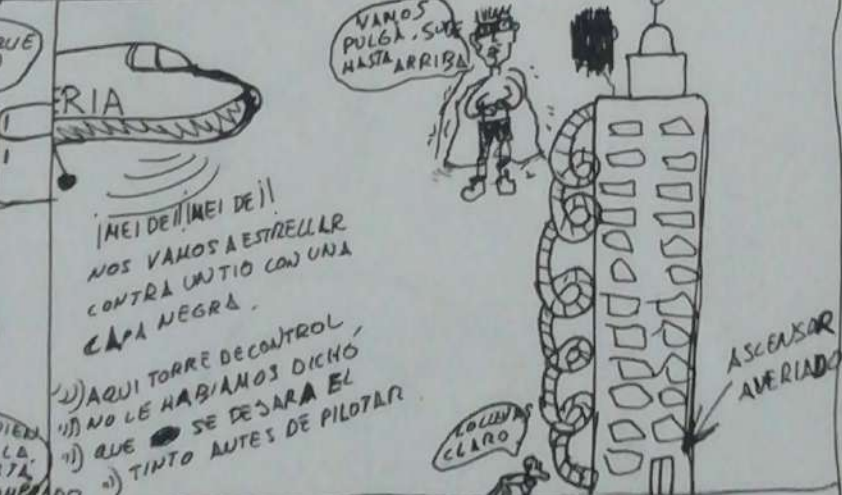 QUE
ERIA
¡MEI DE!¡MEI DE!¡
NOS VAMOS A ESTRELLAR
CONTRA UN TIO CON UNA
CAPA NEGRA.
AQUI TORRE DE CONTROL,
NO LE HABIAMOS DICHO
QUE SE DEJARA EL
TINTO ANTES DE PILOTAR
VAMOS
PULGA, SUBE
HASTA ARRIBA
CLARO
ASCENSOR
AVERIADO